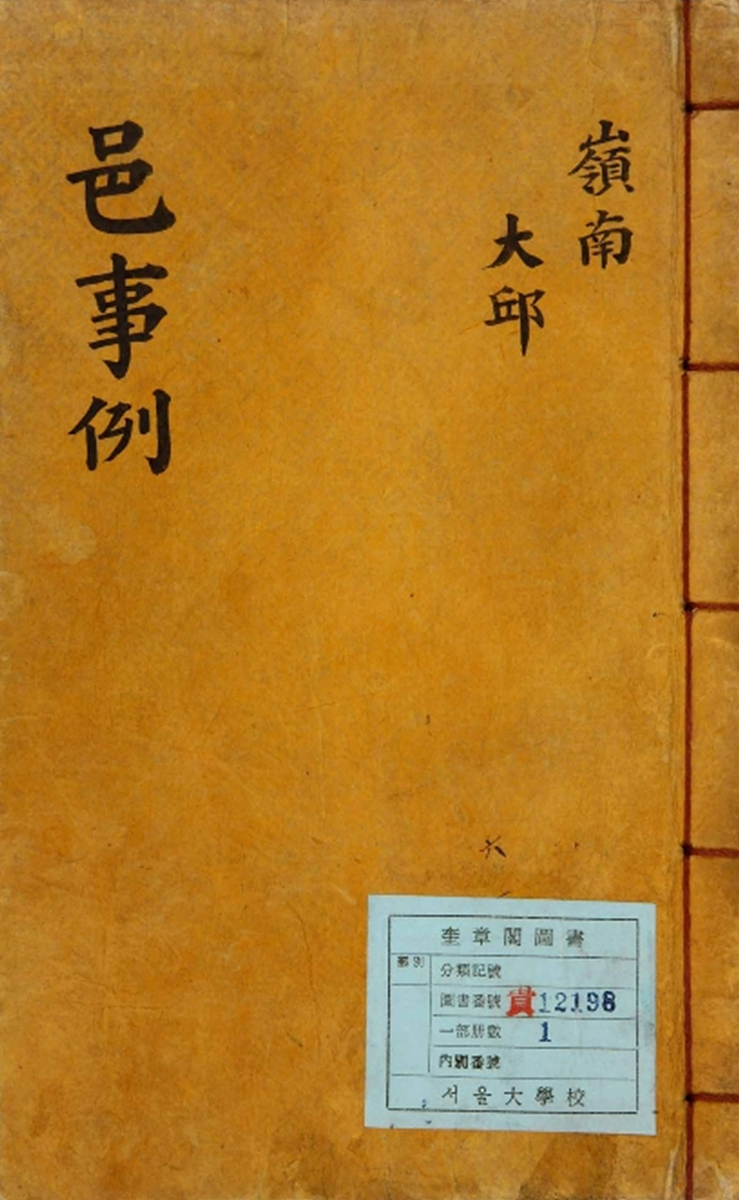 嶺南
大邱
邑事例
奎章閣圖書
部別
分類記號
圖書番號 貴12198
一部册數 1
內別番號
서울大學校